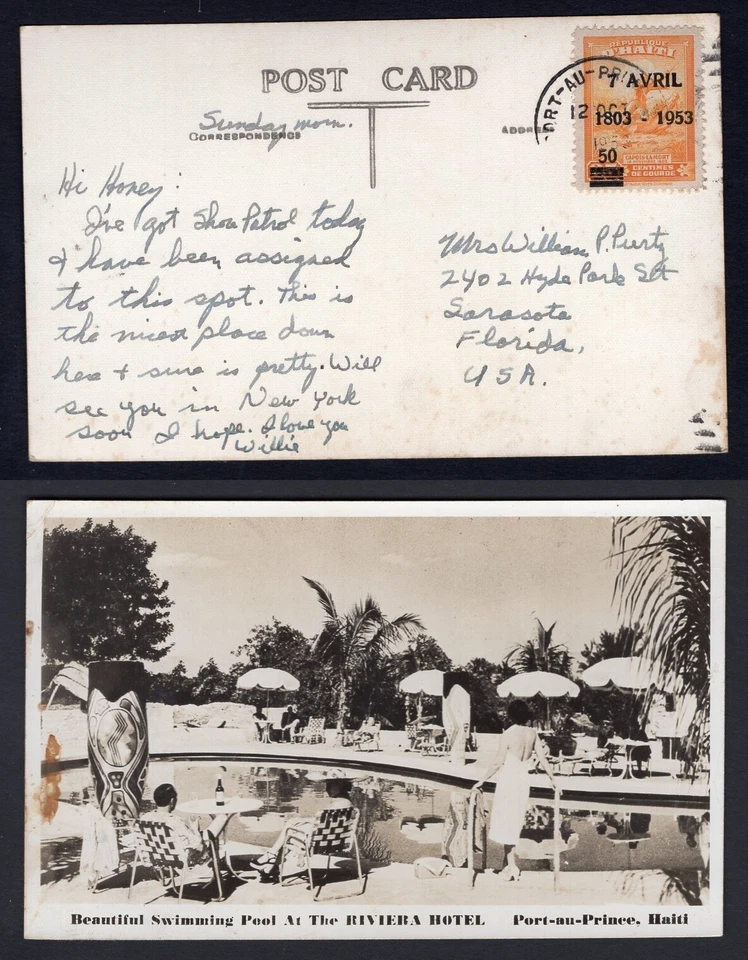 POST CARD
Sunday morn.
CORRESPONDENCE
ADDRE
PORT-AU-PRIN
12 OCT
195
RÉPUBLIQUE
D'HAITI
7 AVRIL
1803 1953
50
CENTIMES
DE GOURDE
Hi Honey:
I've got Shore Patrol today
& have been assigned
to this spot. This is
the nicest place down
here + sure is pretty. Will
see you in New York
soon I hope. I love you
Willie
Mrs William P.
2402 Hyde Park St
Sarasota
Florida,
USA.
Beautiful Swimming Pool At The RIVIERA HOTEL Port-au-Prince, Haiti